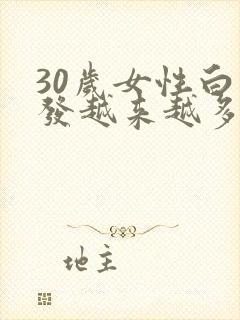 30歲女性白
發越来越多
地主